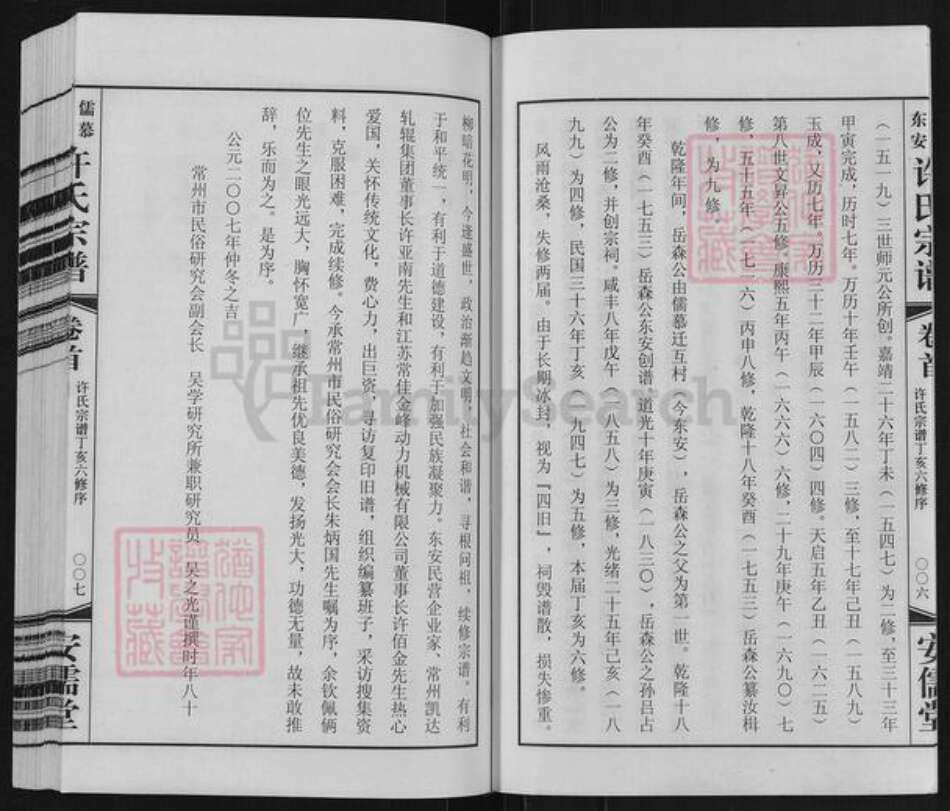 东安
许氏宗谱
卷首
许氏宗谱丁亥六修序
〇〇六
安儒堂
（一五一九）三世师元公所创。嘉靖二十六年丁未（一五四七）为二修，至三十三年
甲寅完成，历时七年。万历十年壬午（一五八二）三修，至十七年己丑（一五八九）
玉成，又历七年。万历三十二年甲辰（一六〇四）四修。天启五年乙丑（一六二五）
第八世文昇公五修。康熙五年丙午（一六六六）六修，二十九年庚午（一六九〇）七
修，五十五年（一七一六）丙申八修，乾隆十八年癸酉（一七五三）岳森公纂汝楫
修，为九修。
乾隆年间，岳森公由儒慕迁互村（今东安），岳森公之父为第一世。乾隆十八
年癸酉（一七五三）岳森公东安创谱。道光十年庚寅（一八三〇），岳森公之孙吕占
公为二修，并创宗祠。咸丰八年戊午（一八五八）为三修，光绪二十五年己亥（一八
九九）为四修，民国三十六年丁亥（一九四七）为五修，本届丁亥为六修。
风雨沧桑，失修两届。由于长期冰封，视为『四旧』，祠毁谱散，损失惨重。
柳暗花明，今逢盛世，政治渐趋文明，社会和谐，寻根问祖，续修宗谱。有利
于和平统一，有利于道德建设，有利于加强民族凝聚力。东安民营企业家、常州凯达
轧辊集团董事长许亚南先生和江苏常佳金峰动力机械有限公司董事长许佰金先生热心
爱国，关怀传统文化，费心力，出巨资，寻访复印旧谱，组织编纂班子，采访搜集资
料，克服困难，完成续修。今承常州市民俗研究会会长朱炳国先生嘱为序，余钦佩俩
位先生之眼光远大，胸怀宽广，继承祖先优良美德，发扬光大，功德无量，故未敢推
辞，乐而为之。是为序。
公元二〇〇七年仲冬之吉
常州市民俗研究会副会长　吴学研究所兼职研究员　吴之光谨撰时年八十
儒慕
许氏宗谱
卷首
许氏宗谱丁亥六修序
〇〇七
安儒堂
FamilySearch